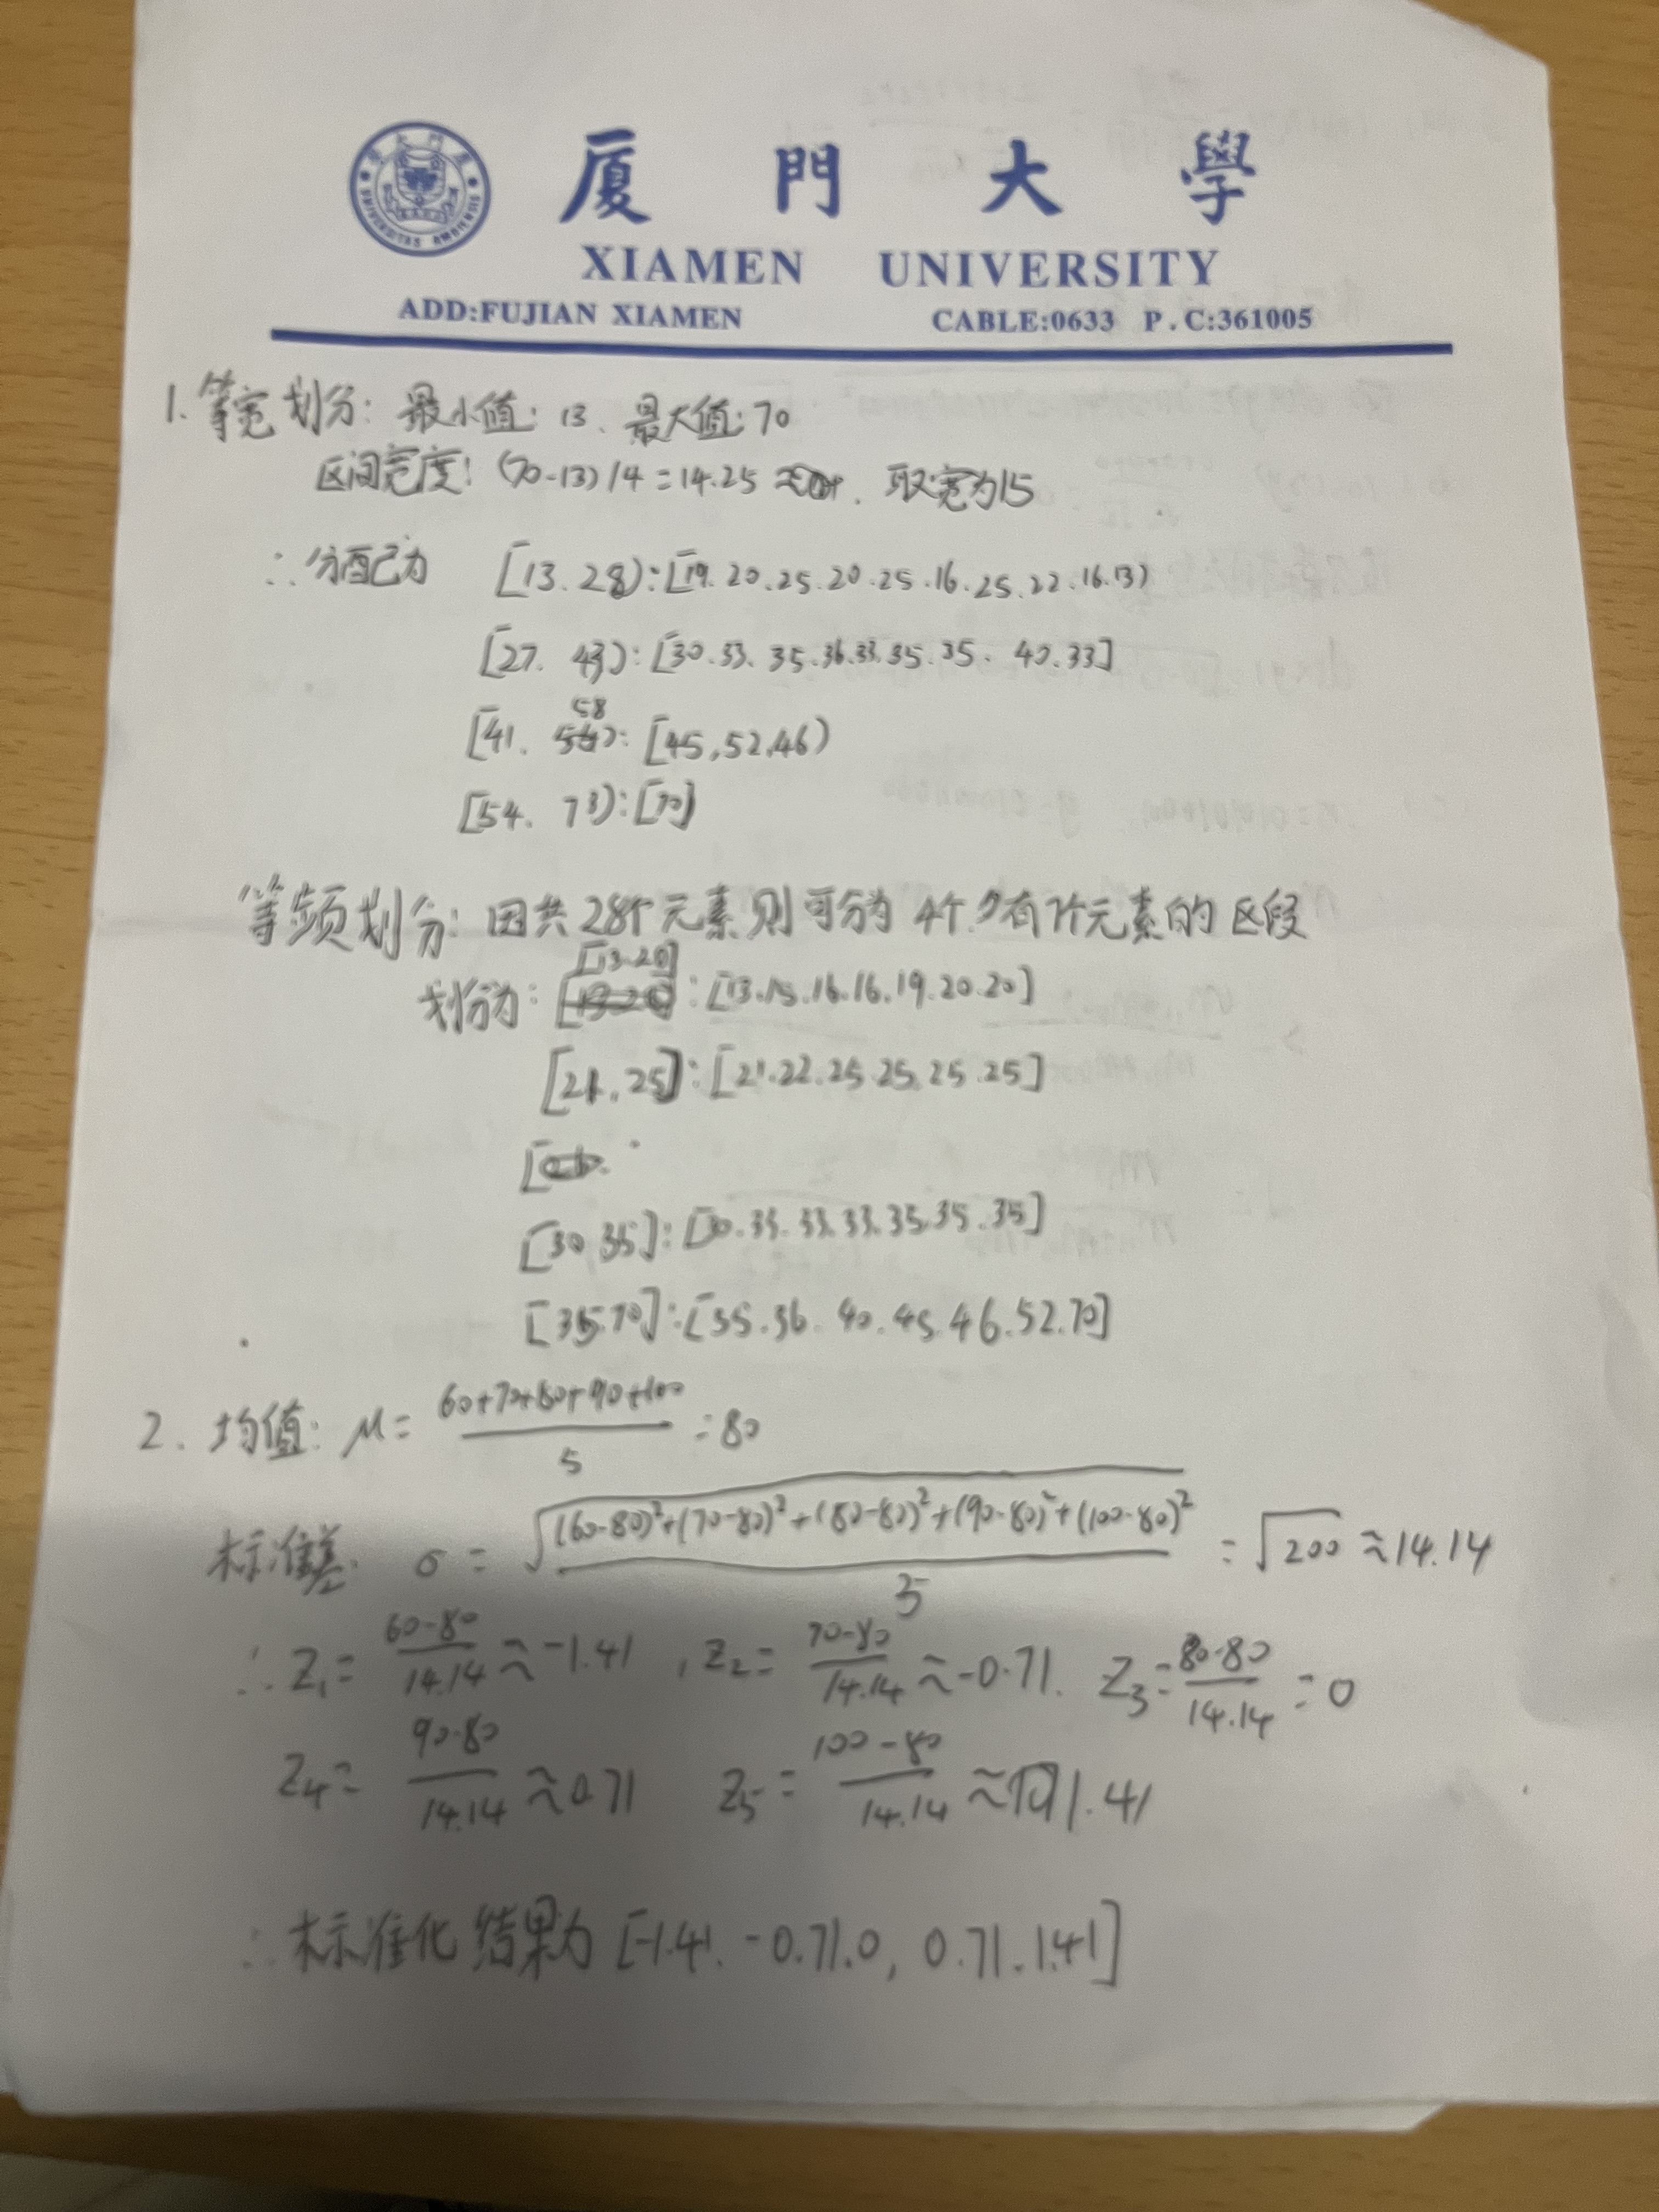 厦門大學
XIAMEN UNIVERSITY
ADD:FUJIAN XIAMEN CABLE:0633 P.C:361005
1. 等宽划分: 最小值: 13、最大值: 70
区间宽度: (70-13)/4=14.25 取宽为15
∴分配为 [13.28):[19.20.25.20.25.16.25.22.16.13)
[27. 43):[30.33.35.36.33.35.35.40.33]
[41. 58):[45,52,46)
[54. 73):[70]
等频划分: 因共28个元素则可分为4个含有7个元素的区段
划分为: [13.20]:[13.15.16.16.19.20.20]
[21.25]:[21.22.25.25.25.25]
[30 35]:[30.33.33.33.35.35.35]
[35.70]:[35.36.40.45.46.52.70]
2. 均值: μ= (60+70+80+90+100)/5 =80
标准差 σ = √((60-80)²+(70-80)²+(80-80)²+(90-80)²+(100-80)²)/5 = √200 ≈14.14
∴ Z₁= (60-80)/14.14 ≈-1.41 , Z₂= (70-80)/14.14 ≈-0.71. Z₃= (80-80)/14.14 =0
Z₄= (90-80)/14.14 ≈0.71 Z₅= (100-80)/14.14 ≈1.41
∴标准化结果为 [-1.41. -0.71.0, 0.71.1.41]